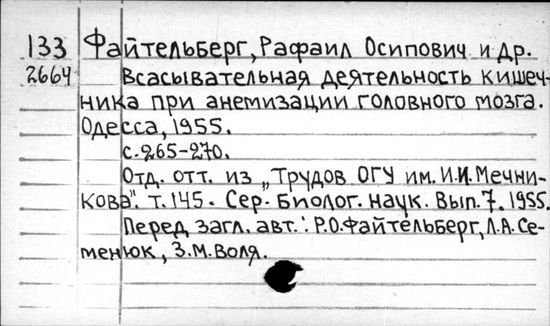 133 Файтельберг, Рафаил Осипович и др.
2664 Всасывательная деятельность кишеч-
ника при анемизации головного мозга.
Одесса, 1955.
с. 265-270.
Отд. отт. из „Трудов ОГУ им. И.И. Мечни-
кова". т. 145. Сер. Биолог. наук. Вып. 7. 1955.
Перед загл. авт.: Р.О. Файтельберг, Л.А. Се-
менюк, З.М. Воля.